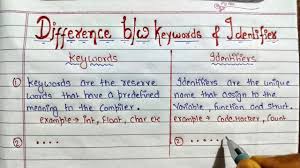 Difference b/w Keywords & Identifier
Keywords
Identifiers
① Keywords are the reserve
words that have a predefined
meaning to the Compiler.
example → int, float, char etc
Identifiers are the unique
name that assign to the
Variable, function and struct.
example → Code, number, Count
②
2